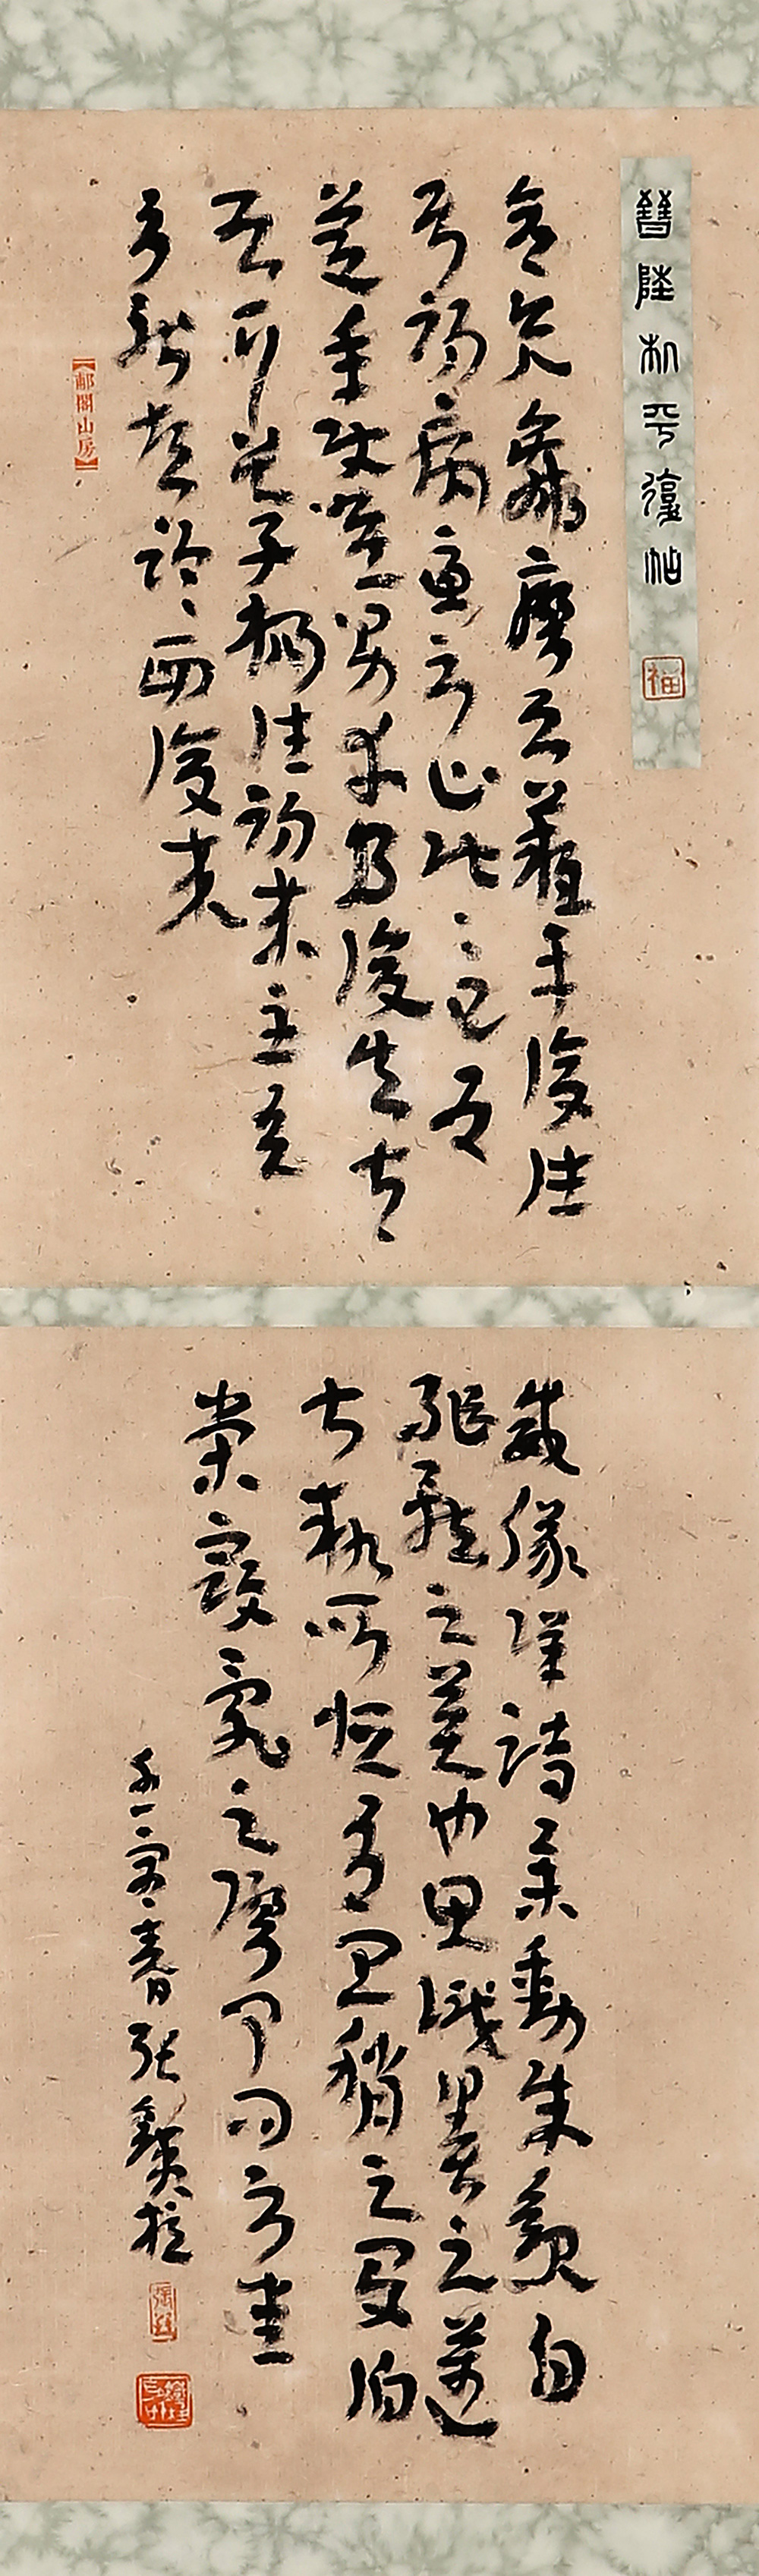 晉陸机平復帖
彦先羸瘵恐難平復往
屬初病慮不止此〻已為
慶承使唯男幸為復失前
憂耳吳子楊往初來主吾
不能盡臨西復來
郙閣山房
威儀詳跱舉動成觀自
軀體之美也思識量之邁
前執所恒有宜稱之夏伯
榮寇亂之際聞問不悉
春張